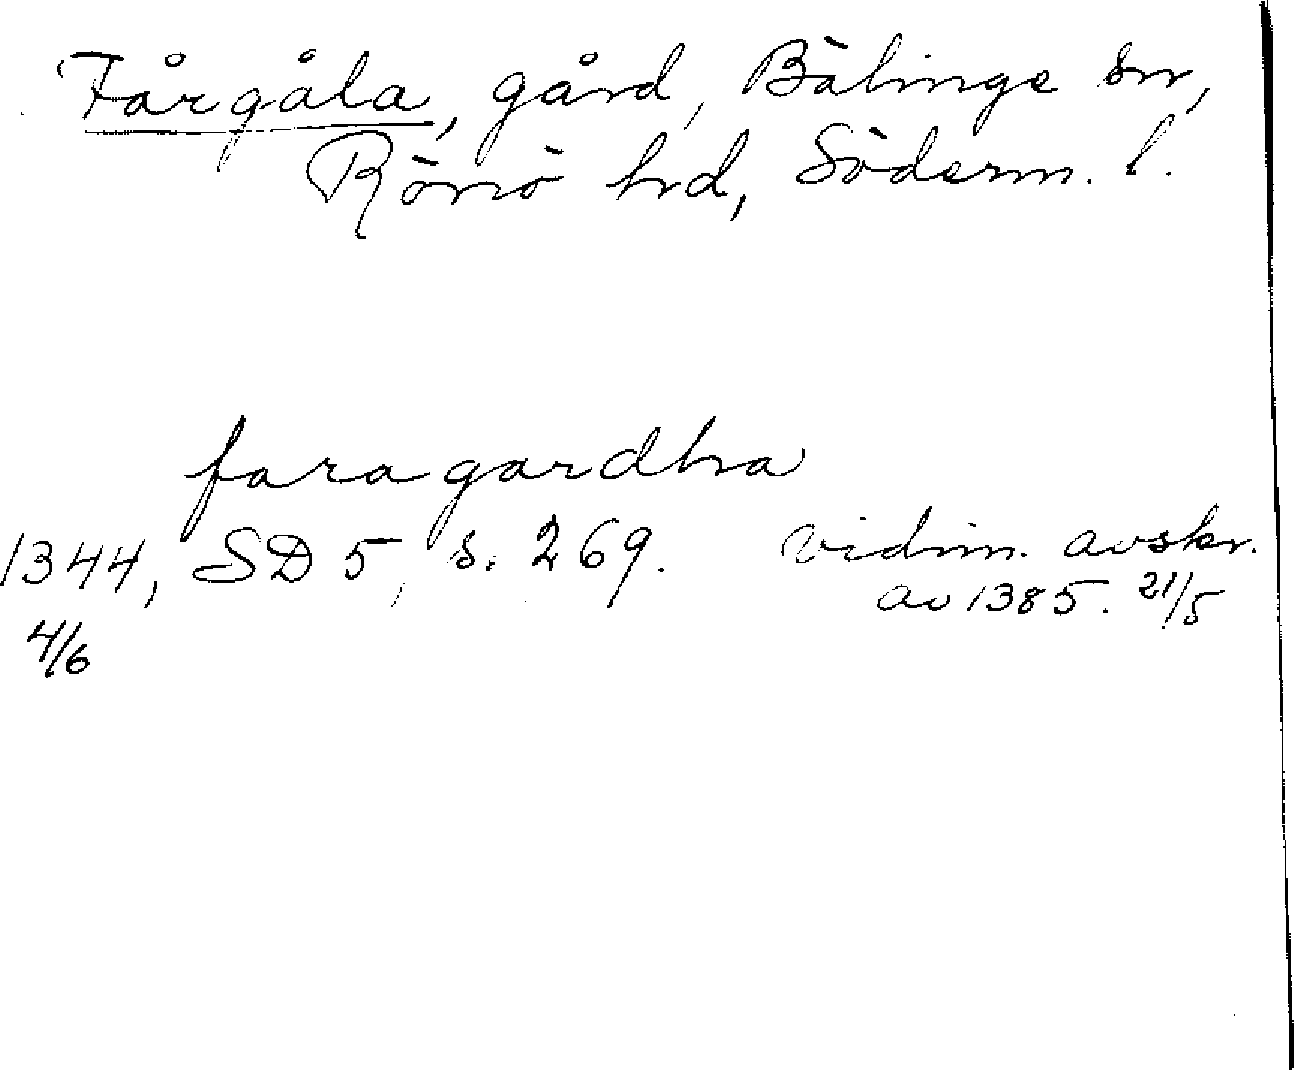 Fårgåla, gård, Bälinge sn,
Rönö hd, Söderm. l.
faragardha
1344, SD 5, s. 269. vidim. avskr.
4/6 av 1385. 21/5